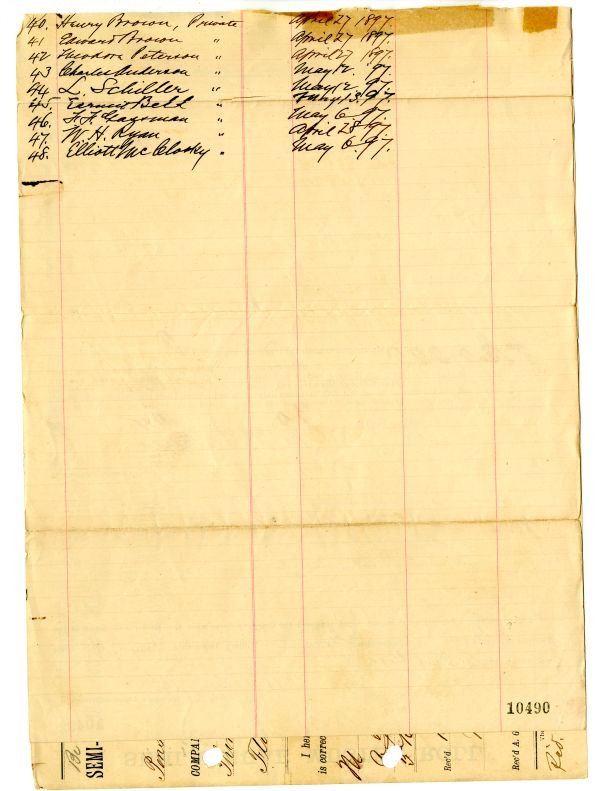 40. Henry Brown, Private April 27 1897.
41. Edward Brown " April 27 1897.
42 Theodore Peterson " April 27 1897.
43 Charles Anderson " May 12. 97.
44 L. Schiller " May 12, 97.
45. Earnest Bell " 13. 97.
46. F. F. " May 6 97.
47. W. H. Ryan " April 28 97.
48. Elliott McClosky " May 6. 97.
10490
SEMI-
COMPAI
I he
is correc
Rec'd.
Rec'd A. G
Rec.